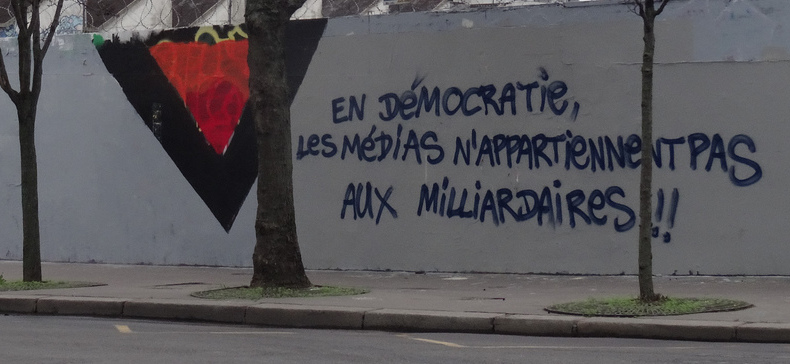 EN DéMOCRATie,
Les MéDiAS N'APPARTieNNeNT PAS
AUX MiLLiARDAiRes !!